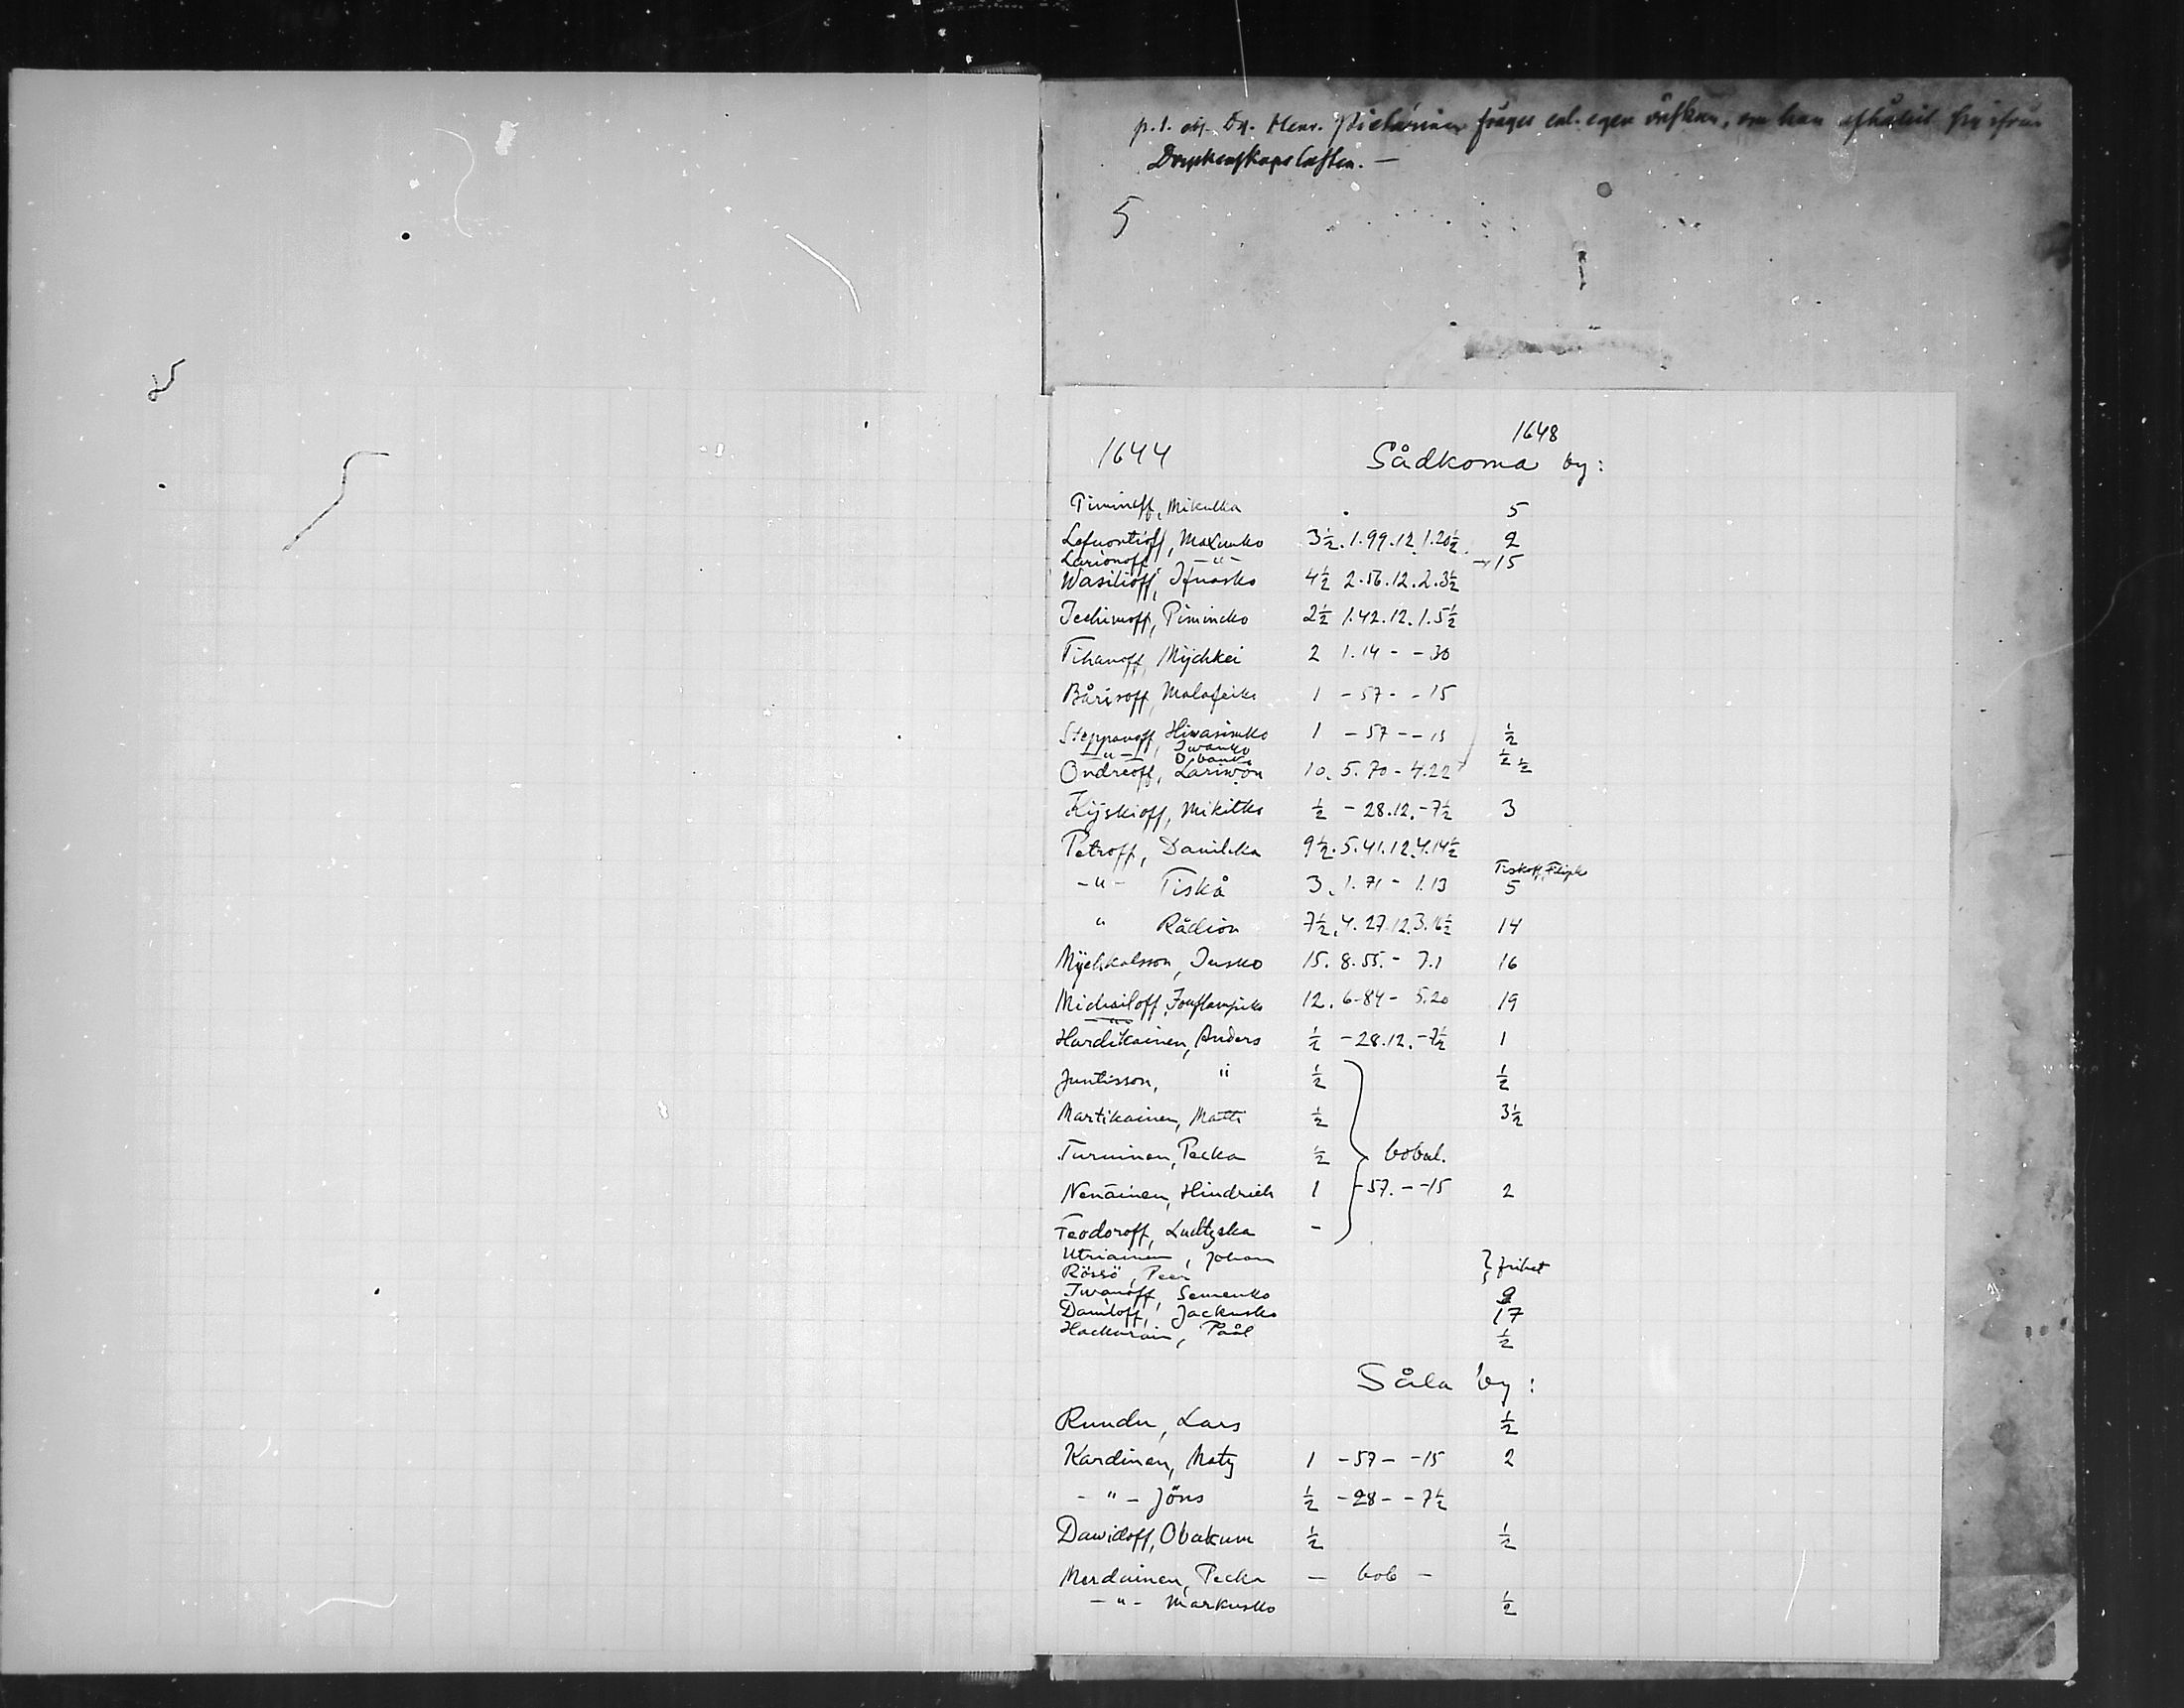 p. 1. Dr. Henr. fråges enl. egen önskan, om han
Dryckenskapslasten. —
5
1648
1644 Sådkoma by:
Pimineff, Mikulka 5
Lefuontioff, Maxunko 3½. 1.99.12. 1.20½. 2
Larionoff, -"- 15
Wasilioff, Ifnasko 4½ 2.56.12.2.3½
Jechimoff, Pimincko 2½ 1.42.12.1.5½
Tihanoff, Mijchkei 2 1.14 - - 30
Bårisoff, Malafeiko 1 - 57 - - 15
Steppanoff, Hirasimko 1 - 57 - - 15 ½
-"- Iwanko ½ ½
Ondreoff, Lariwon 10. 5.70 - 4.22
Kijskioff, Mikitko ½ - 28.12. - 7½ 3
Petroff, Danilcka 9½. 5.41.12.4.14½
Tiskoff, Filipk
-"- Tiskå 3. 1.71 - 1.13 5
" Rådion 7½. 4.27.12.3.16½ 14
Mychkalsson, Jusko 15. 8.55. - 7.1 16
Michailoff, 12. 6.84 - 5.20 19
Hardikainen, Anders ½ - 28.12. - 7½ 1
Juntisson, " ½ ½
Martikainen, Matti ½ 3½
Turuinen, Pecka ½ bobul.
Nenäinen, Hindrich 1 - 57. - - 15 2
Feodoroff, Ludtzska -
Utriainen, Johan
Rössö, Peer } frihet
Iwanoff, Semenko 9
Daniloff, Jackusko 17
Hackarain, Påål ½
Såla by:
Rundu, Lars ½
Kardinen, Matz 1 - 57 - - 15 2
- " - Jöns ½ - 28 - - 7½
Dawidoff, Obakum ½ ½
Merdainen, Pecka — bob —
- " - Markusko ½